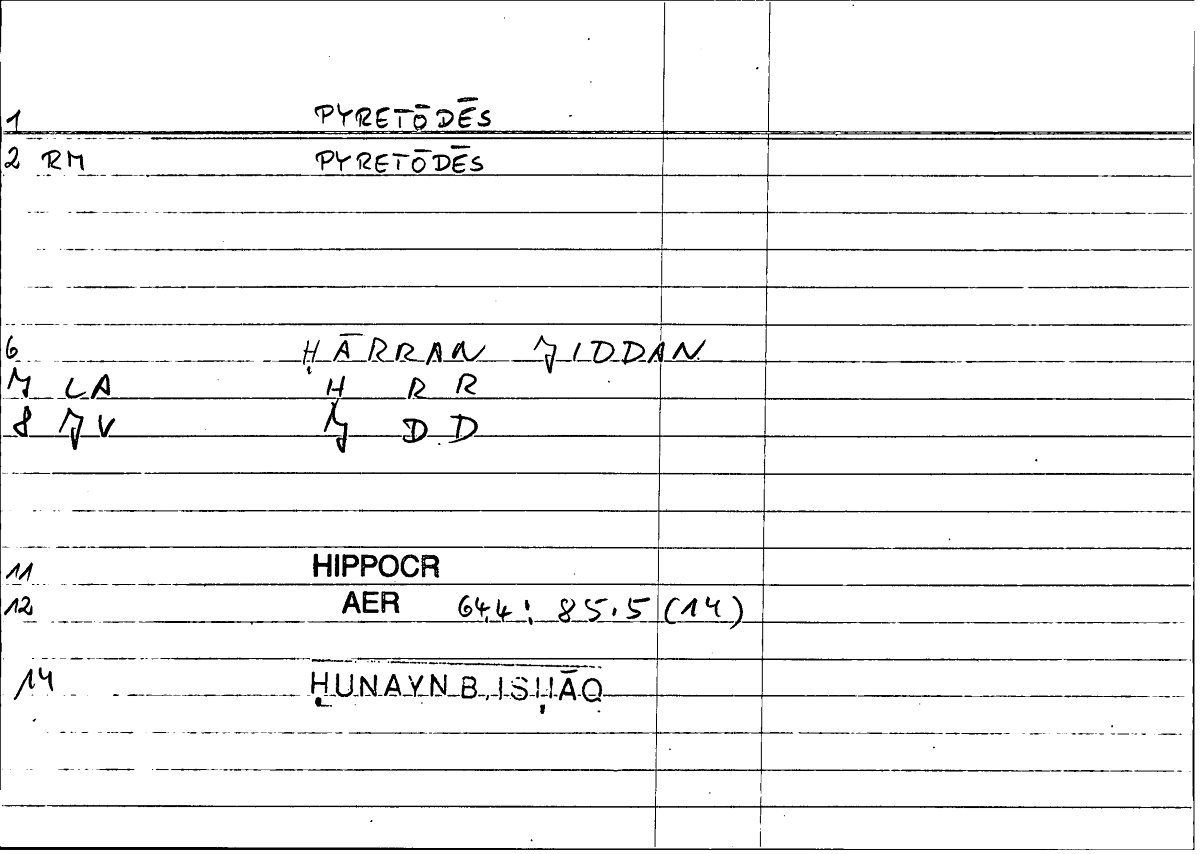 1 PYRETŌDĒS
2 RM PYRETŌDĒS
6 ḤĀRRAN JIDDAN
7 LA Ḥ R R
8 JV J D D
11 HIPPOCR
12 AER 64,4: 85.5 (14)
14 ḤUNAYN B. ISḤĀQ